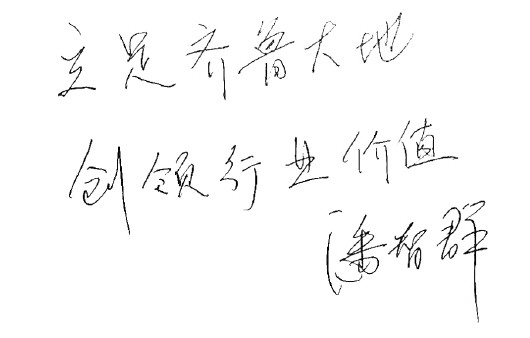 立足齐鲁大地
创领行业价值
潘智群